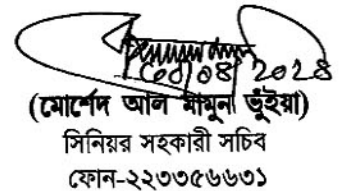 ০৪/২০২৪
(মোর্শেদ আল মামুন ভূঁইয়া)
সিনিয়র সহকারী সচিব
ফোন-২২৩৩৫৬৬৩১